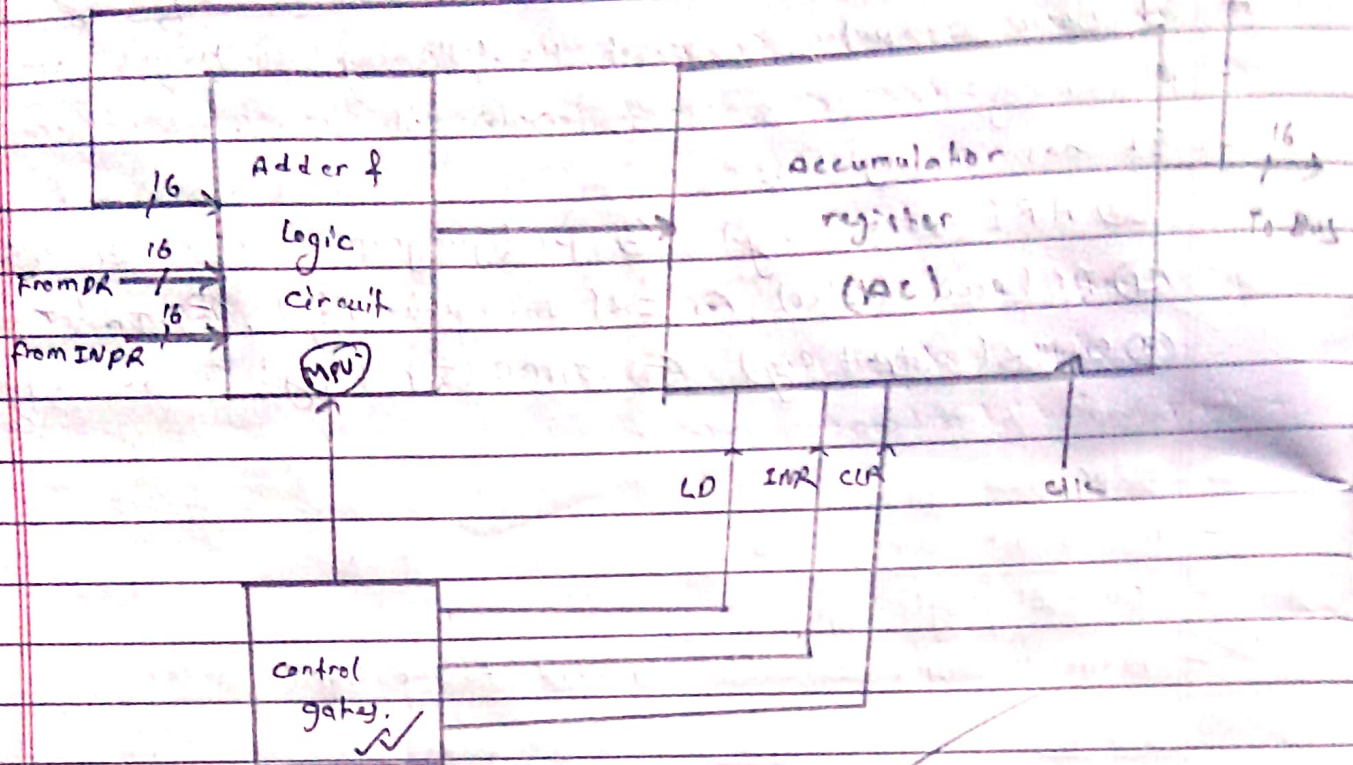 Adder &
Logic
circuit
MPU
16
From DR
16
from INPR
16
Accumulator
register
(AC)
16
To Bus
LD
INR
CLR
control
gates.